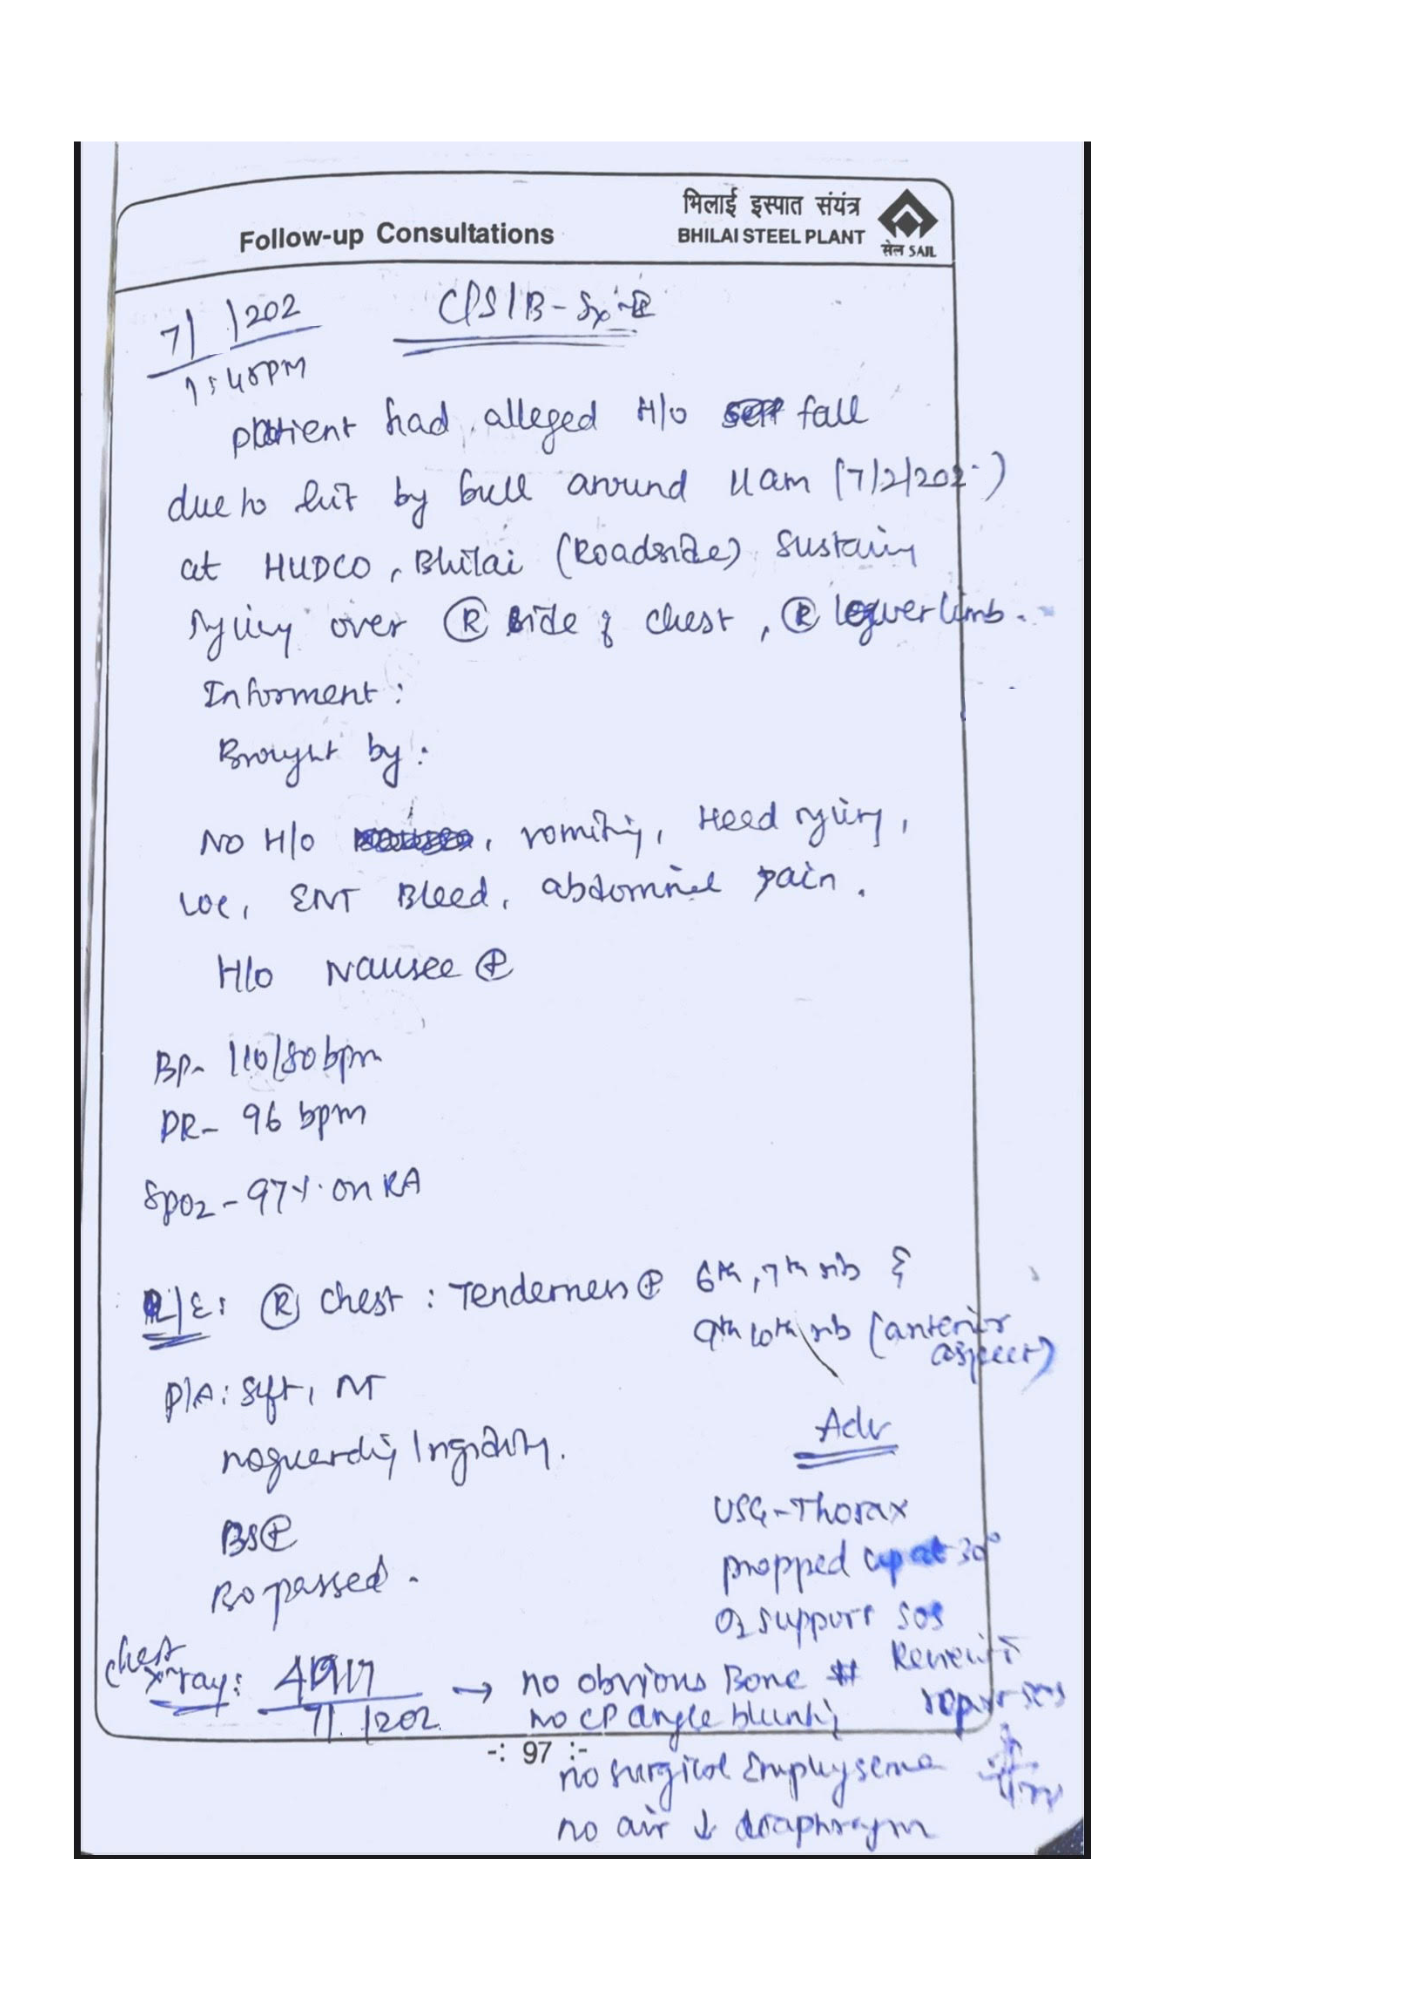 भिलाई इस्पात संयंत्र
Follow-up Consultations
BHILAI STEEL PLANT
सेल SAIL
7/ /202
C/S/B - Sx
1:45PM
patient had alleged H/o fall
due to hit by bull around 11am (7/2/202 )
at HUDCO, Bhilai (Roadside) Sustaing
injury over Ⓡ side of chest, Ⓡ lower limb.
Informent :
Brought by :
NO H/o , vomiting, Heed injury,
LOC, ENT Bleed, abdominel pain.
H/o Nausee ⊕
BP- 110/80 bpm
PR- 96 bpm
SpO2 - 97% on RA
L/E: Ⓡ Chest : Tenderness ⊕ 6th, 7th rib &
9th 10th rib (anterior
aspect)
P/A: Soft, NT
no guarding / rigidity.
BS⊕
Bo passed.
Adv
USG-Thorax
propped up at 30°
O2 support sos
Review
sos
Chest
x-ray:
7/ /202
→ no obvious Bone #
no CP angle blunting
-: 97 :-
no surgical Emphysema
no air ↓ diaphragm